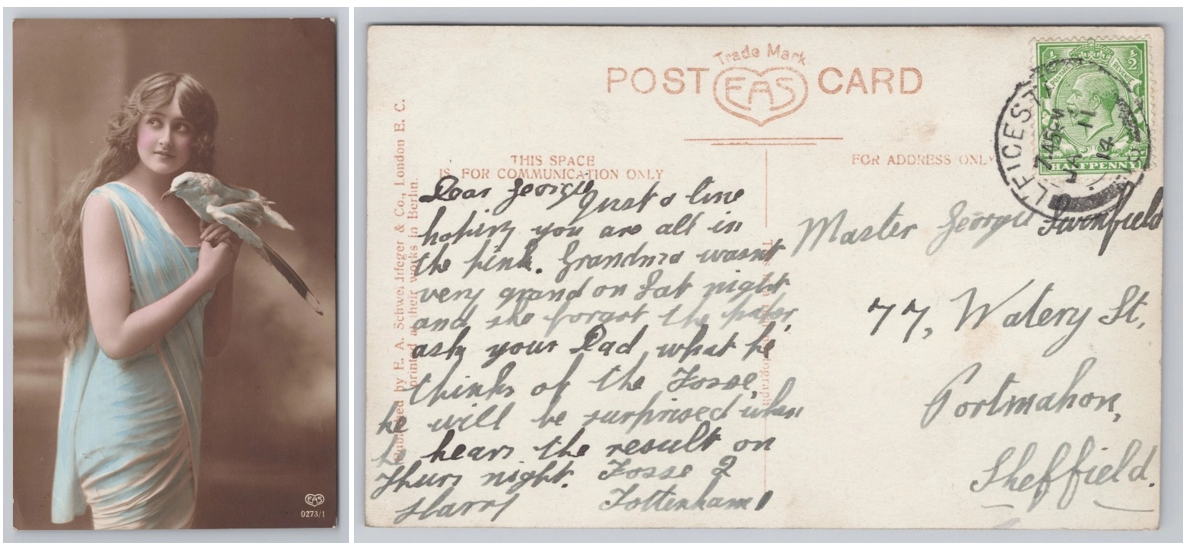 EAS
0273/1
POST CARD
Trade Mark
EAS
THIS SPACE
IS FOR COMMUNICATION ONLY
FOR ADDRESS ONLY
HALFPENNY
LEICESTER
7.45 PM
11
14
by E. A. Schwerdtfeger & Co., London E. C.
printed at their works in Berlin.
Dear Georgie just a line
hoping you are all in
the pink. Grandma wasnt
very grand on Sat night
and she forgot the
ask your Dad what he
thinks of the Fosse,
he will be surprised when
he hears the result on
Thurs night. Fosse 2
Harry Tottenham 1
Master Georgie
77, Watery St,
Portmahon,
Sheffield.